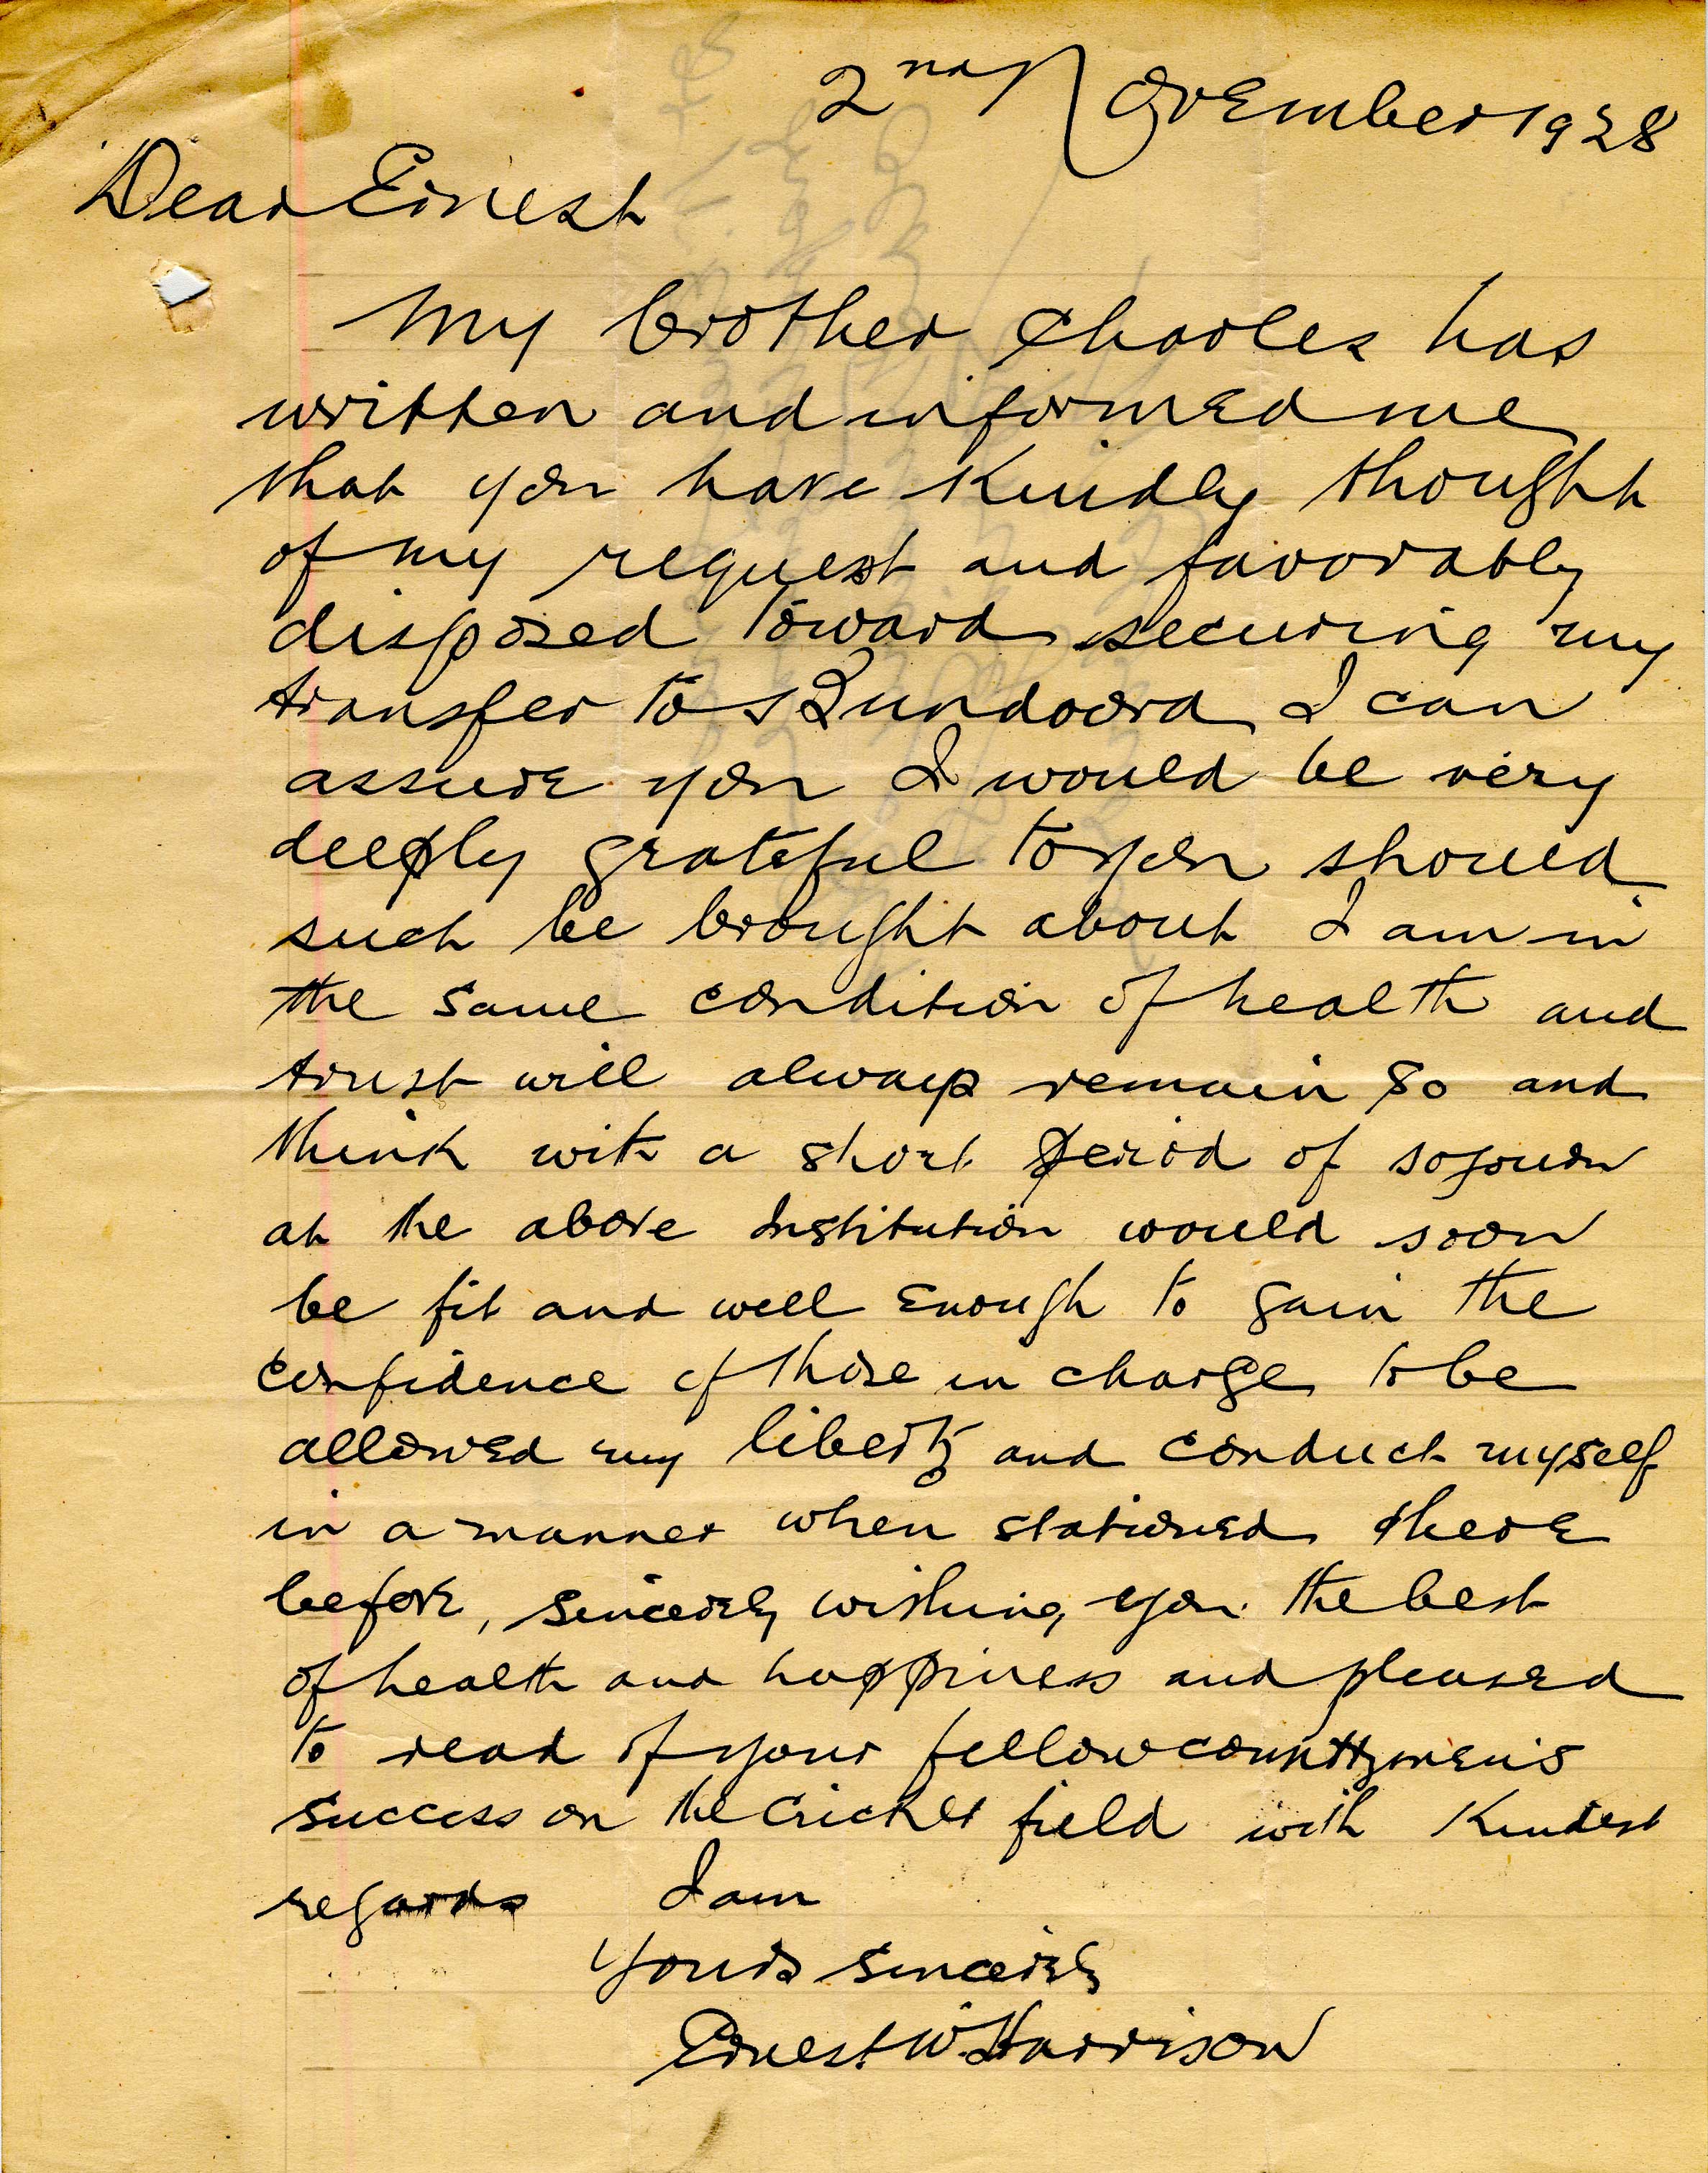 2nd November 1928
Dear Ernest
My brother Charles has
written and informed me
that you have kindly thought
of my request and favorably
disposed toward securing my
transfer to Bundoora I can
assure you I would be very
deeply grateful to you should
such be brought about I am in
the same condition of health and
trust will always remain so and
think with a short period of sojourn
at the above Institution would soon
be fit and well enough to gain the
confidence of those in charge to be
allowed my liberty and conduct myself
in a manner when stationed there
before, sincerely wishing you the best
of health and happiness and pleased
to read of your fellowcountrymen's
success on the cricket field with Kindest
regards I am
Yours sincerely
Ernest W. Harrison